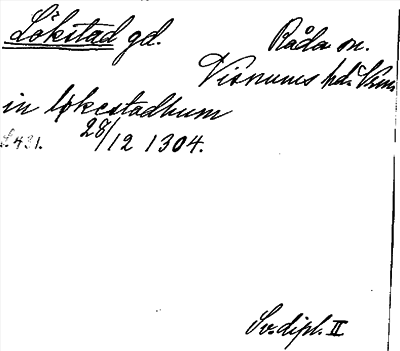 Lökstad gd. Råda sn.
Visnums hd. Vrml
in løkestadhum
28/12 1304.
Sv. dipl. II